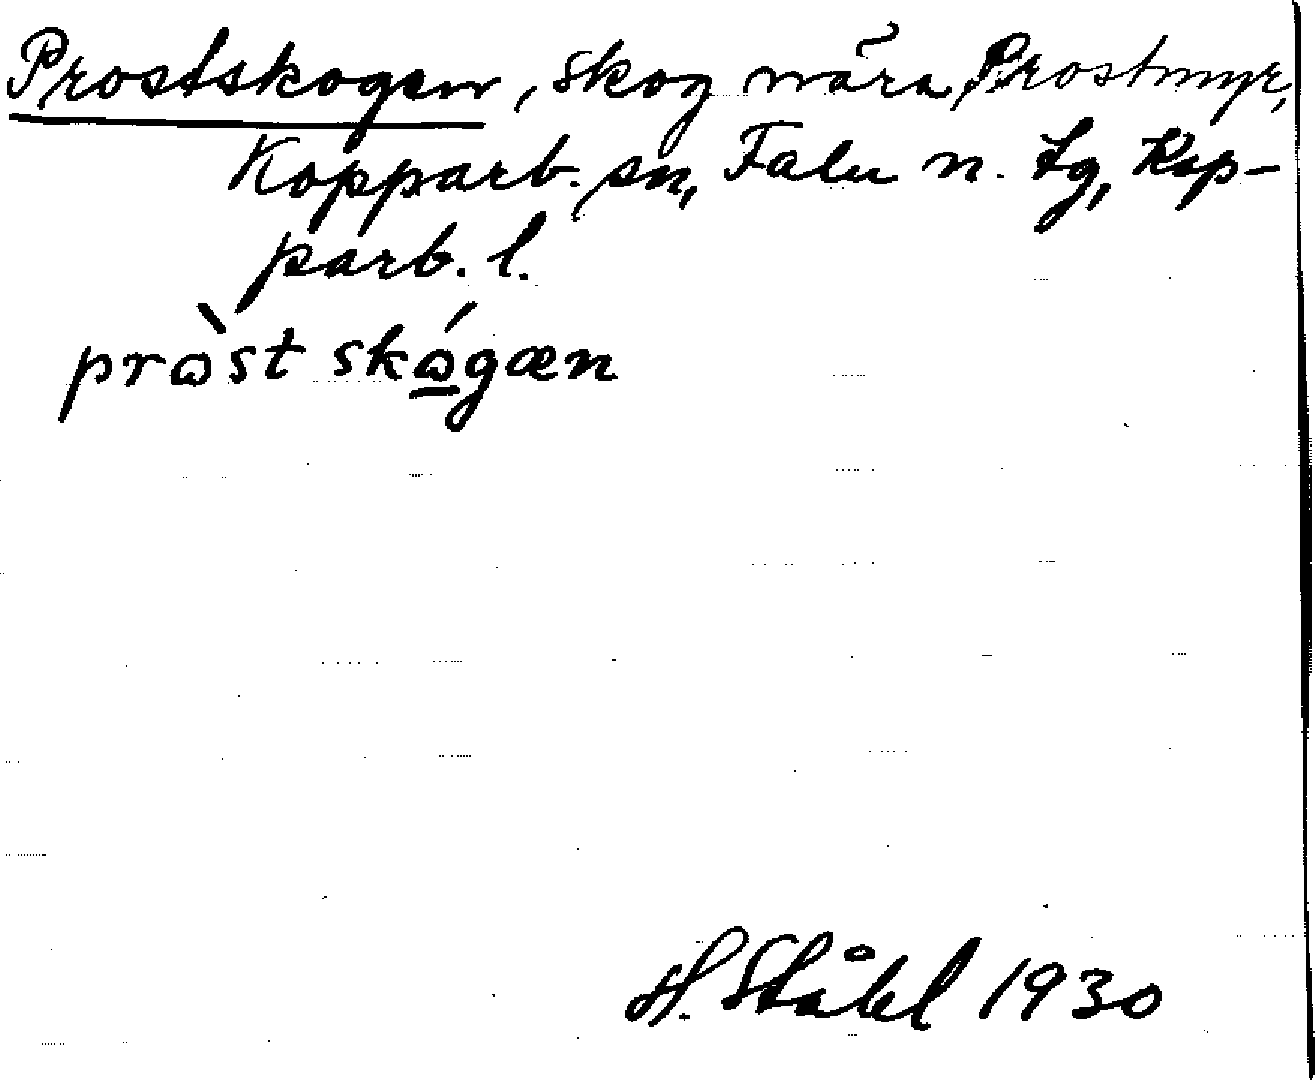 Prostskogen, skog nära Prostmyr,
Kopparb. sn, Falu n. tg, Kop-
parb. l.
pròst skógæn
H. Ståhl 1930